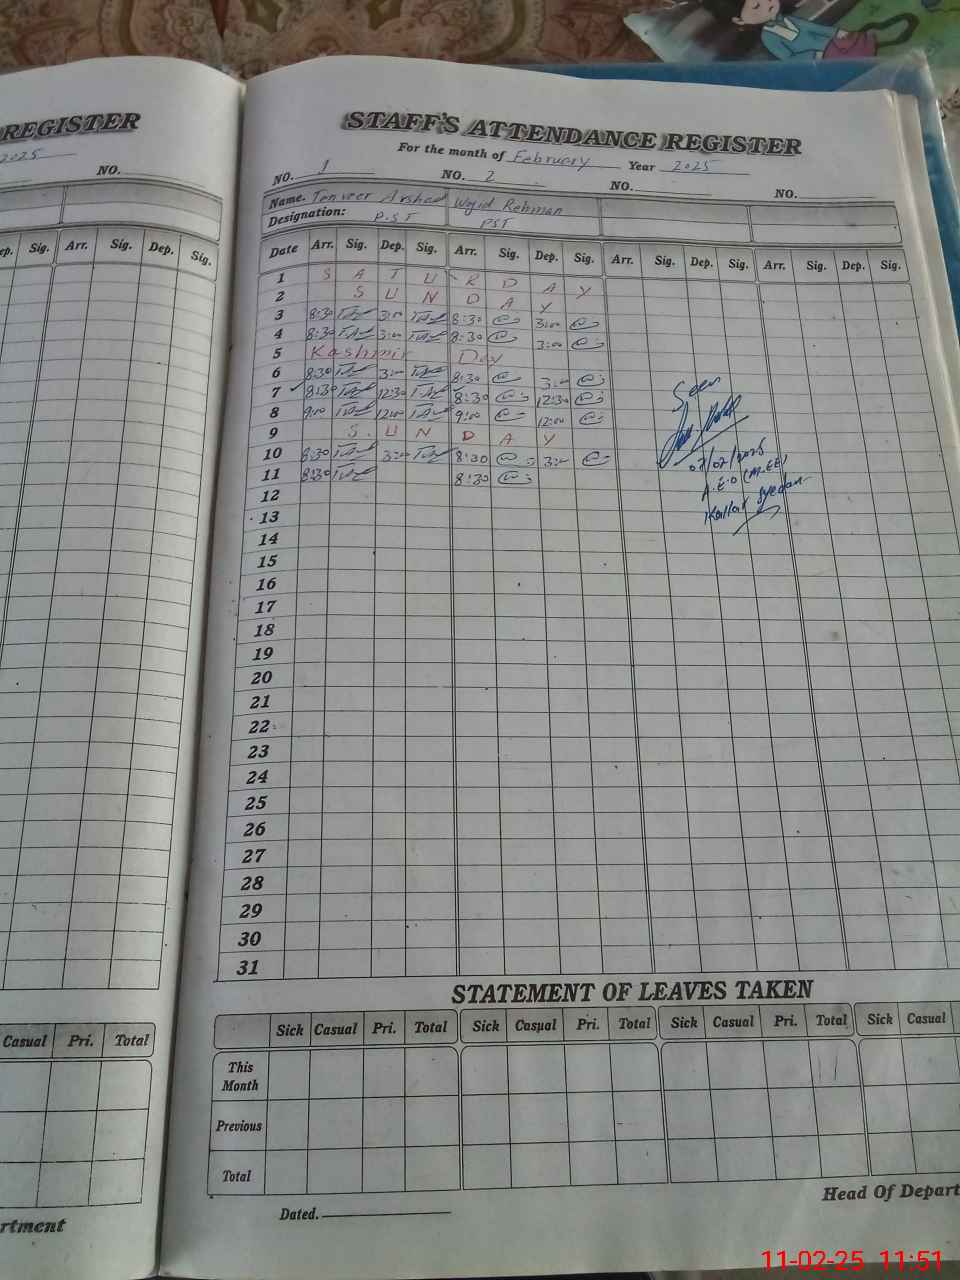 REGISTER
2025
NO.
ep. Sig. Arr. Sig. Dep. Sig.
Casual Pri. Total
rtment
STAFF'S ATTENDANCE REGISTER
For the month of February Year 2025
NO. 1 NO. 2 NO. NO.
Name. Tenveer Arshad Wajid Rehman
Designation: P.ST PST
Date Arr. Sig. Dep. Sig. Arr. Sig. Dep. Sig. Arr. Sig. Dep. Sig. Arr. Sig. Dep. Sig.
1 S A T U R D A Y
2 S U N D A Y
3 8:30 3:00 8:30 3:00
4 8:30 3:00 8:30 3:00
5 Kashmir Day
6 8:30 3:00 8:30 3:00
7 8:30 12:30 8:30 12:30
8 9:00 12:00 9:00 12:00
9 S U N D A Y
10 8:30 3:00 8:30 3:00
11 8:30 8:30
12
13
14
15
16
17
18
19
20
21
22
23
24
25
26
27
28
29
30
31
Seen
07/02/2025
A.E.O (M.EE)
Kallar Syedan
STATEMENT OF LEAVES TAKEN
Sick Casual Pri. Total Sick Casual Pri. Total Sick Casual Pri. Total Sick Casual
This
Month
Previous
Total
Head Of Depart
Dated.
11-02-25 11:51